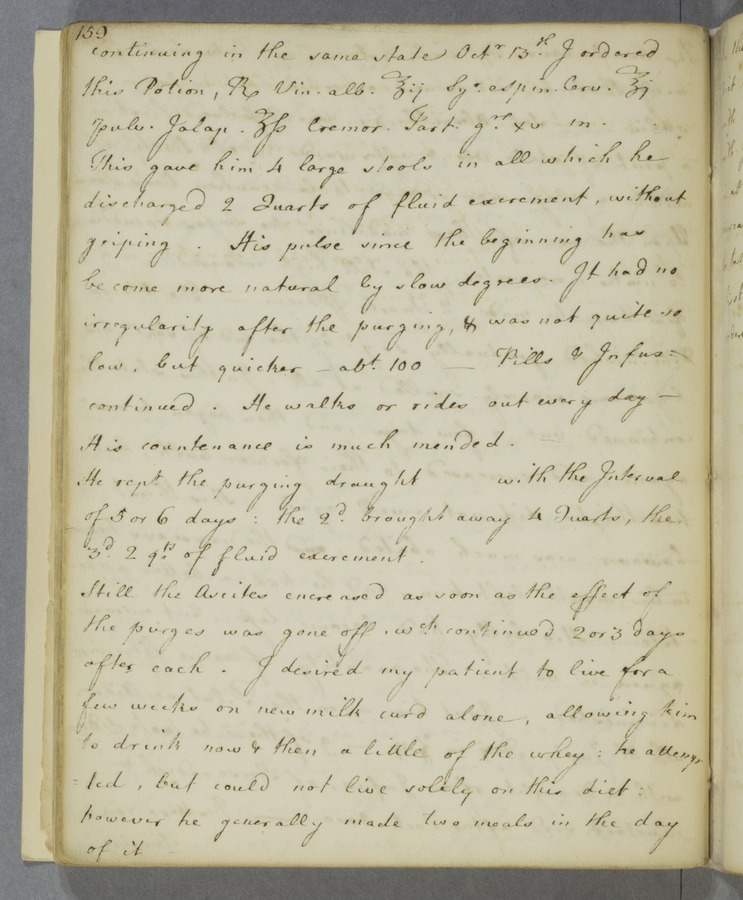 159
continuing in the same state Octr. 13th. I ordered
this Potion, ℞ Vin. alb. ℥ij Syr. e spin. Cerv. ℥j
pulv. Jalap. ʒſs Cremor. Tart. grs. xv m.
This gave him 4 large stools in all which he
discharged 2 Quarts of fluid excrement, without
griping. His pulse since the beginning has
become more natural by slow degrees. It had no
irregularity after the purging, & was not quite so
low, but quicker – abt. 100 — Pills & Infus=
continued. He walks or rides out every day –
His countenance is much mended.
He rept. the purging draught with the Interval
of 5 or 6 days: the 2d. brought away 4 Quarts, the
3d. 2 qts. of fluid excrement.
Still the Ascites encreased as soon as the effect of
the purges was gone off, wch continued 2 or 3 days
after each. I desired my patient to live for a
few weeks on new milk curd alone, allowing him
to drink now & then a little of the whey: he attemp
=ted, but could not live solely on this diet:
however he generally made two meals in the day
of it